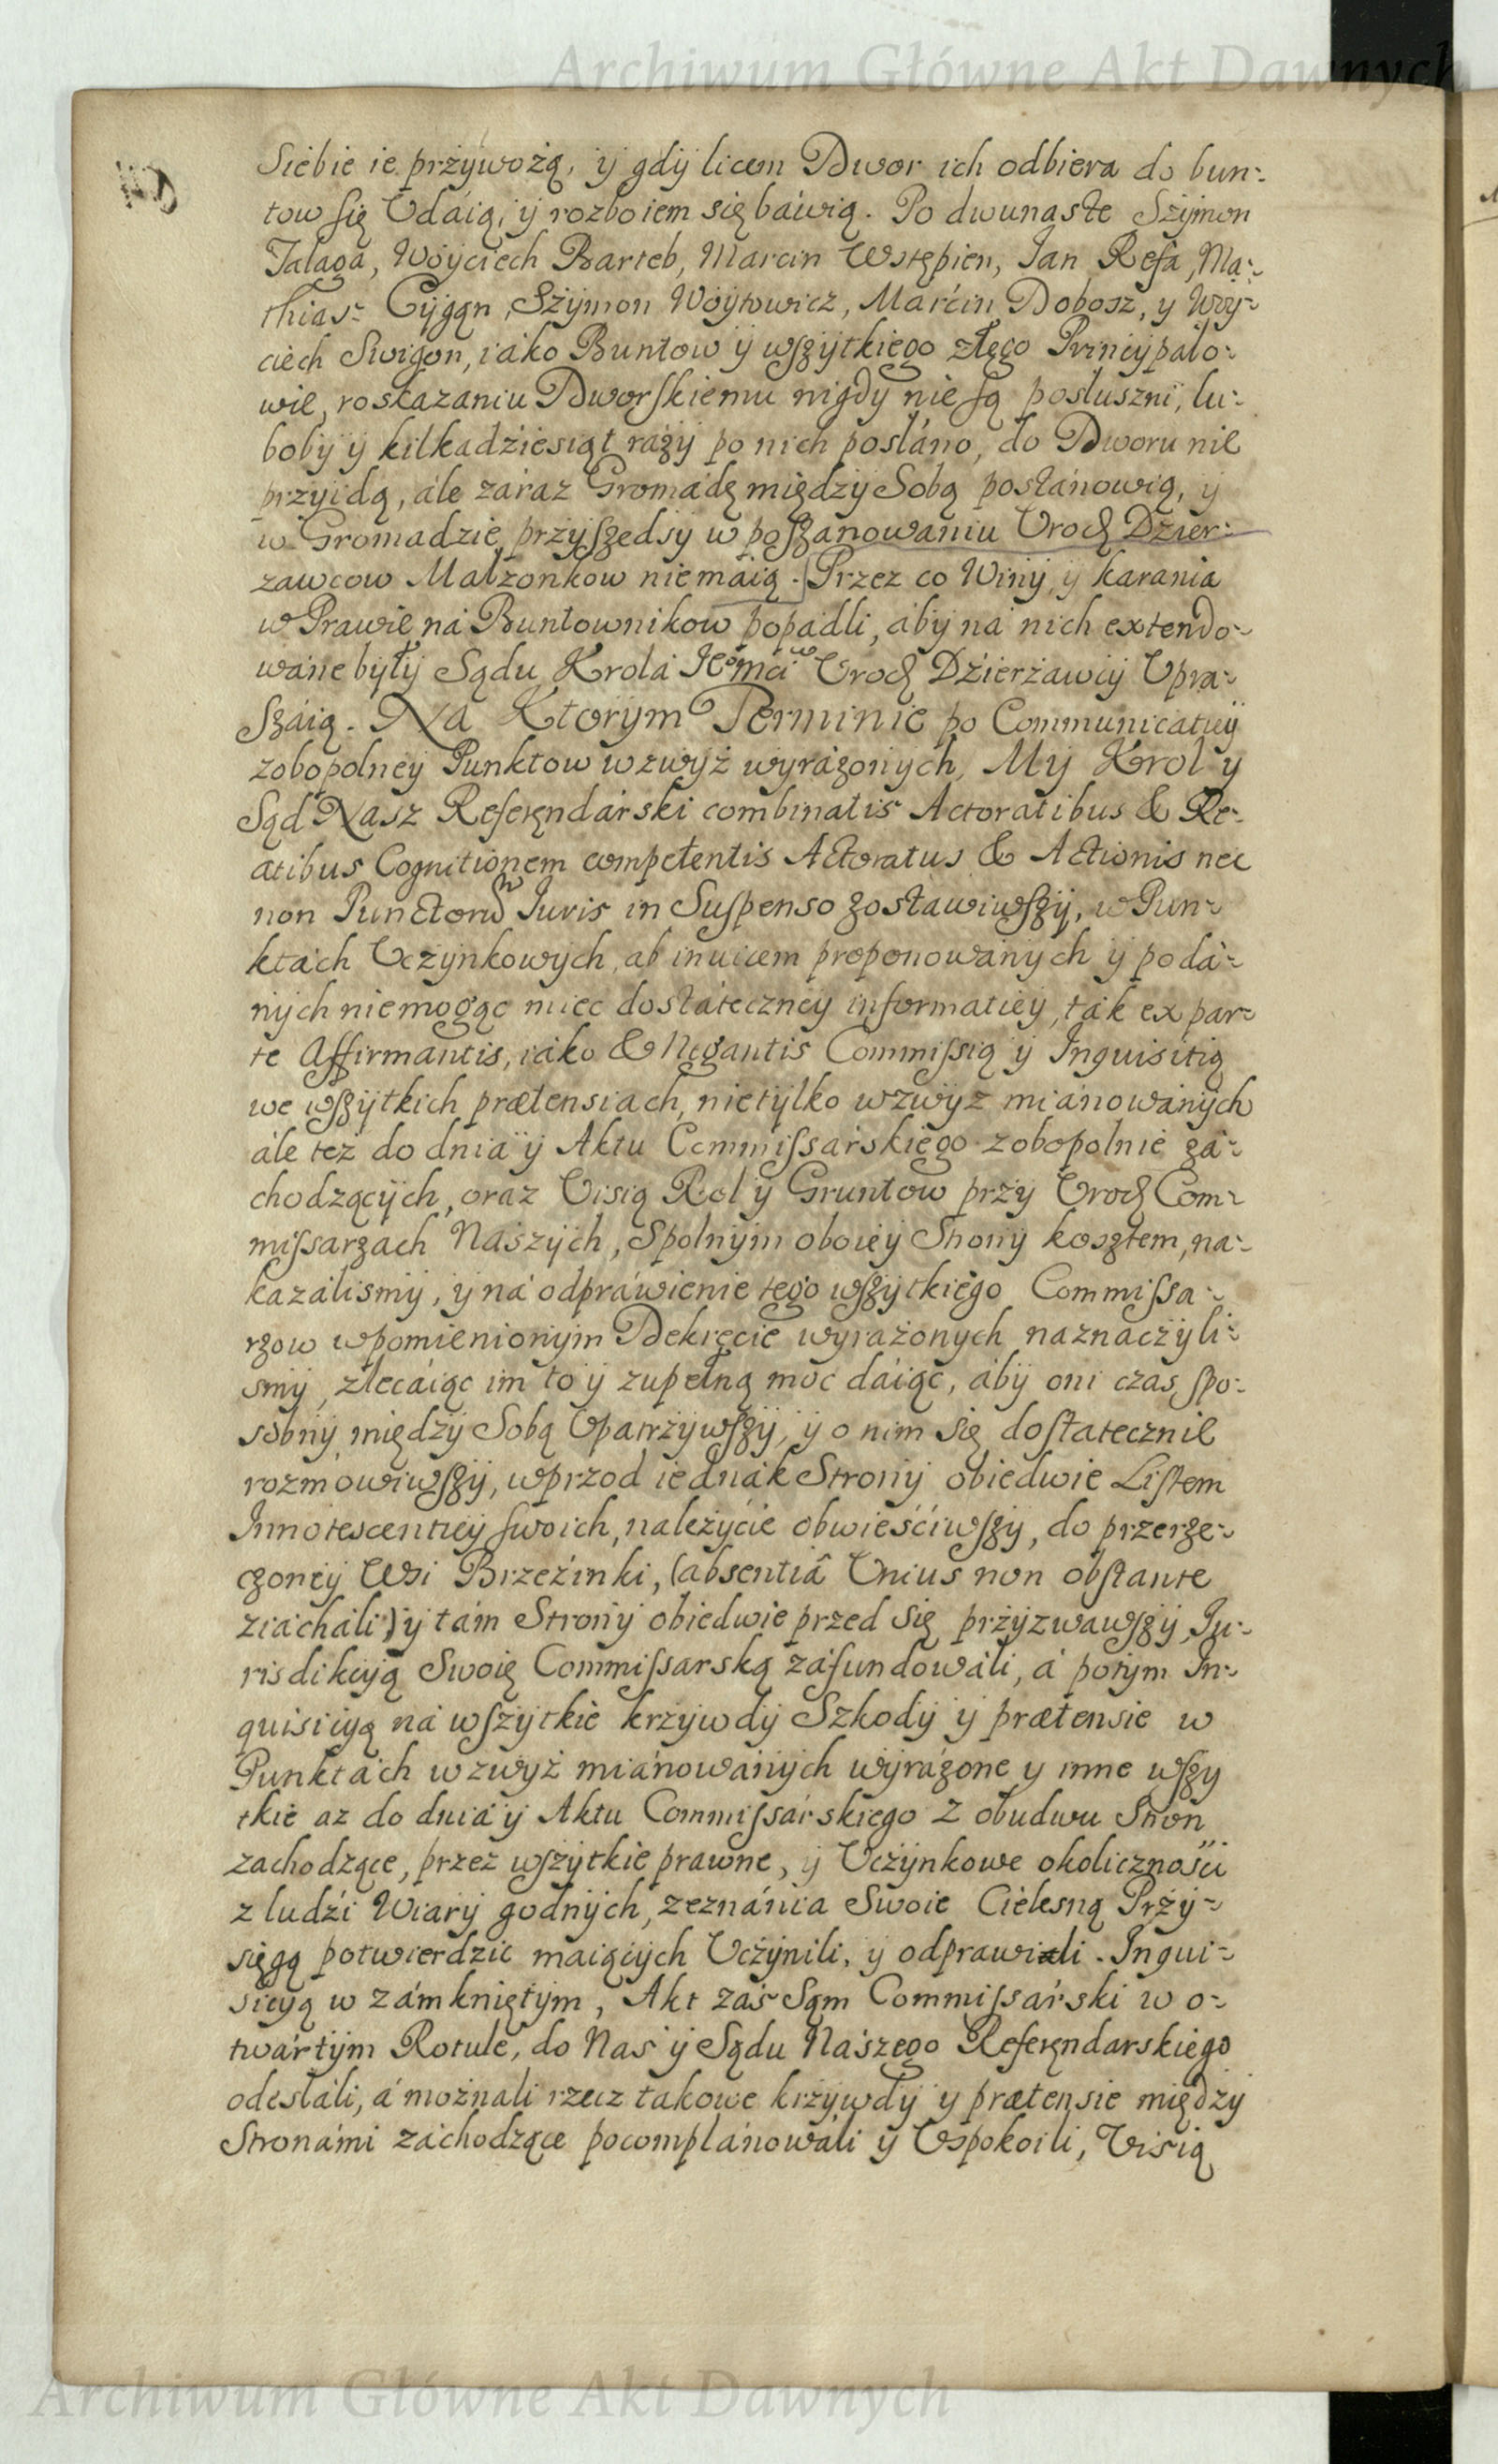 Archiwum Główne Akt Dawnych
Siebie ie przywożą, ÿ gdÿ licem Dwor ich odbiera do bun-
tow się Vdáią, ÿ rozboiem się báwią. Po dwunaste Szÿmon
Jalaga, Woÿciech Barteb, Marcin Wstępien, Jan Refa, Ma-
thias Cÿgąn, Szÿmon Woÿtowicz, Marcin Dobosz, y Woÿ-
ciech Swigon, iáko Buntow ÿ wszÿtkiego złego Princÿpáło-
wie, roskazaniu Dworskiemu nigdÿ nie są posłuszni, lu-
bobÿ ÿ kilkadźiesiąt rázÿ po nich posłáno, do Dworu nie
przÿidą, ále záraz Gromádę międzÿ Sobą postánowią, ÿ
w Gromadzie przÿszedsÿ w poszanowaniu Vrodz Dzier-
zawcow Małzonkow niemáią. Przez co Winÿ, ÿ karania
w Prawie ná Buntownikow popádli, ábÿ ná nich extendo-
wáne bÿłÿ Sądu Krolá Je͠o mći Vrodz Dźierżawcÿ Vpra-
száią. Na Ktorÿm Terminie po Communicatieÿ
zobopolneÿ Punktow wzwÿż wyráżonÿch, Mÿ Krol y
Sąd Nasz Referęndárski combinatis Actoratibus & Re-
atibus Cognitionem competentis Actoratus & Actionis nec
non Punctorũ Juris in Suspenso zostawiwszÿ, w Pun-
ktách Vczÿnkowÿch, ab inuicem proponowánÿch ÿ podá-
nÿch niemogąc miec dostátecznéÿ informatieÿ, ták ex par-
te Affirmantis, iáko & Negantis Commissią ÿ Inquisitią
we wszÿtkich prætensiach, nietÿlko wzwÿz miánowánÿch
ále też do dniá ÿ Aktu Commissárskiego zobopolnie zá-
chodzącÿch, oraz Visią Rol ÿ Gruntow przÿ Vrodz Com-
missarzach Nászÿch, Spolnÿm oboieÿ Stronÿ kosztem, na-
kazálismÿ, ÿ ná odpráwienie tego wszÿtkiego Commissa-
rzow wpomienionÿm Dekręcie wyrażonych naznaczÿli-
smÿ, zlecáiąc im to ÿ zupełną moc dáiąc, ábÿ oni czas spo-
sobnÿ międzÿ Sobą Vpatrzÿwszÿ, ÿ o nim się dostatecznie
rozmowiwszÿ, wprzod iednák Stronÿ obiedwie Listem
Innotescentieÿ swoich, należÿcie obwieśćiwszÿ, do przerze-
czoneÿ Wsi Brzeźinki, (absentiâ Vnius non obstante
ziácháli) ÿ tám Stronÿ obiedwie przed się przÿzwawszÿ, Ju-
risdikcÿą Swoię Commissarską záfundowáli, á potÿm In-
quisicÿą ná wszÿtkie krzÿwdÿ Szkodÿ ÿ prætensie w
Punktách wzwÿż miánowánÿch wÿráżone y inne wszy
tkie az do dniá ÿ Aktu Commissárskiego z obudwu Stron
zachodzące, przez wszÿtkie prawne, ÿ Vczÿnkowe okolicznośći
z ludźi Wiarÿ godnÿch, zeznánia Swoie Cielesną Przÿ-
sięgą potwierdzić maiącÿch Vczÿnili, ÿ odprawili. Inqui-
sicyą w zámkniętÿm, Akt zás Sąm Commissárski w o-
twártÿm Rotule, do Nas ÿ Sądu Nászego Referęndarskiego
odesłáli, á możnali rzecz takowe krzÿwdÿ ÿ prætensie międzÿ
Stronámi záchodzące pocomplánowáli ÿ Vspokoili, Visią
Archiwum Główne Akt Dawnych